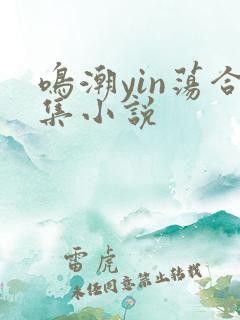 鸣潮yin荡合
集小说
雷虎
未经同意禁止转载